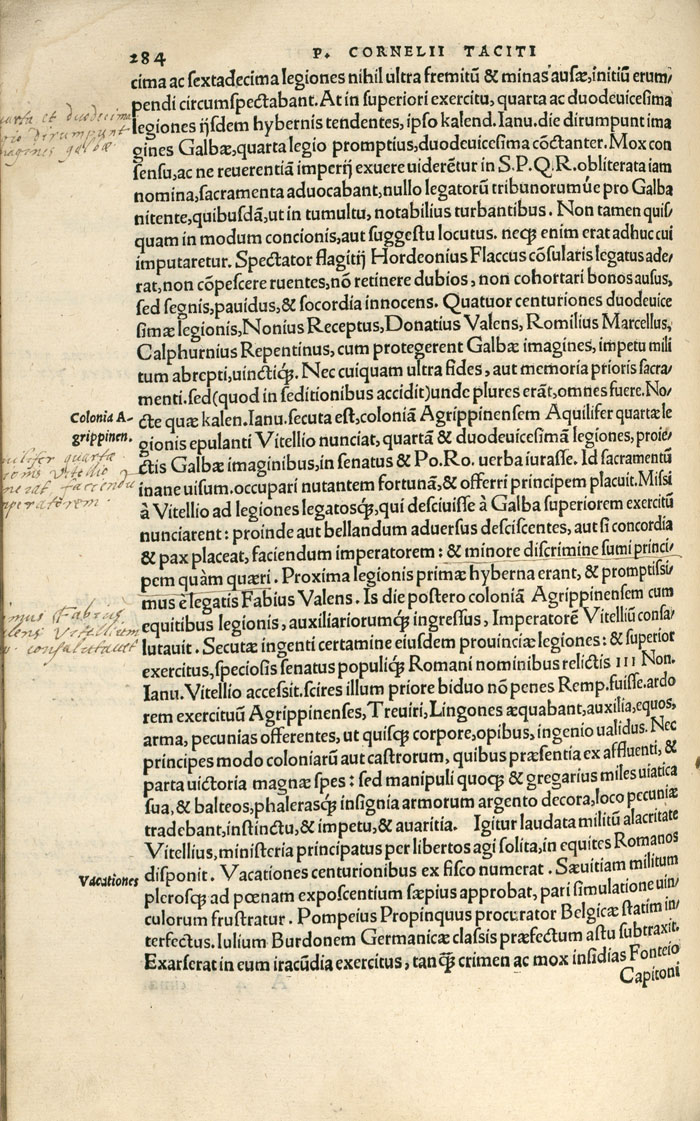 284
P. CORNELII TACITI
cima ac sextadecima legiones nihil ultra fremitũ & minas ausæ, initiũ erum/
pendi circumspectabant. At in superiori exercitu, quarta ac duodeuicesima
legiones ijsdem hybernis tendentes, ipso kalend. Ianu. die dirumpunt ima
gines Galbæ, quarta legio promptius, duodeuicesima cõctanter. Mox con
sensu, ac ne reuerentiã imperij exuere uiderẽtur in S.P.Q.R. obliterata iam
nomina, sacramenta aduocabant, nullo legatorũ tribunorumúe pro Galba
nitente, quibusdã, ut in tumultu, notabilius turbantibus. Non tamen quis/
quam in modum concionis, aut suggestu locutus. neqꝫ enim erat adhuc cui
imputaretur. Spectator flagitij Hordeonius Flaccus cõsularis legatus ade/
rat, non cõpescere ruentes, nõ retinere dubios, non cohortari bonos ausus,
sed segnis, pauidus, & socordia innocens. Quatuor centuriones duodeuice
simæ legionis, Nonius Receptus, Donatius Valens, Romilius Marcellus,
Calphurnius Repentinus, cum protegerent Galbæ imagines, impetu mili
tum abrepti, uinctiqꝫ́. Nec cuiquam ultra fides, aut memoria prioris sacra/
menti. sed (quod in seditionibus accidit) unde plures erãt, omnes fuere. No/
Colonia A-
grippinen.
cte quæ kalen. Ianu. secuta est, coloniã Agrippinensem Aquilifer quartæ le
gionis epulanti Vitellio nunciat, quartã & duodeuicesimã legiones, proie/
ctis Galbæ imaginibus, in senatus & Po. Ro. uerba iurasse. Id sacramentũ
inane uisum. occupari nutantem fortunã, & offerri principem placuit. Missi
à Vitellio ad legiones legatosqꝫ́, qui desciuisse à Galba superiorem exercitũ
nunciarent: proinde aut bellandum aduersus desciscentes, aut si concordia
& pax placeat, faciendum imperatorem: & minore discrimine sumi princi/
pem quàm quæri. Proxima legionis primæ hyberna erant, & promptissi/
mus è legatis Fabius Valens. Is die postero coloniã Agrippinensem cum
equitibus legionis, auxiliariorumqꝫ́ ingressus, Imperatorẽ Vitelliũ consa/
lutauit. Secutæ ingenti certamine eiusdem prouinciæ legiones: & superior
exercitus, speciosis senatus populiqꝫ́ Romani nominibus relictis III Non.
Ianu. Vitellio accessit. scires illum priore biduo nõ penes Remp. fuisse. ardo
rem exercituũ Agrippinenses, Treuiri, Lingones æquabant, auxilia, equos,
arma, pecunias offerentes, ut quisqꝫ corpore, opibus, ingenio ualidus. Nec
principes modo coloniarũ aut castrorum, quibus præsentia ex affluenti, &
parta uictoria magnæ spes: sed manipuli quoqꝫ & gregarius miles uiatica
sua, & balteos, phalerasqꝫ́ insignia armorum argento decora, loco pecuniæ
tradebant, instinctu, & impetu, & auaritia. Igitur laudata militũ alacritate
Vitellius, ministeria principatus per libertos agi solita, in equites Romanos
Vacationes
disponit. Vacationes centurionibus ex fisco numerat. Sæuitiam militum
plerosqꝫ ad pœnam exposcentium sæpius approbat, pari simulatione uin/
culorum frustratur. Pompeius Propinquus procurator Belgicæ statim in/
terfectus. Iulium Burdonem Germanicæ classis præfectum astu subtraxit.
Exarserat in eum iracũdia exercitus, tanqꝫ̃ crimen ac mox insidias Fonteio
Capitoni
et duodecim
dirumpunt
quarta
Vitellio
Fabius
Vitellium
consalutauit